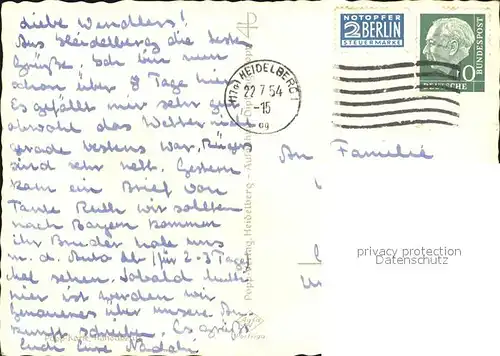 Liebe Wendlers!
Aus Heidelberg die besten
Grüße. Ich bin nun
schon über 8 Tage hier
Es gefällt mir sehr gut
obwohl das Wetter nicht
gerade bestens war.
sind sehr nett. Gestern
kam ein Brief von
Tante Ruth wir sollten
nach Bayern kommen
ihr Bruder hole uns
m. d. Auto ab für 2-3 Tage
mal sehen. Sobald Mutti
hier ist werden wir
genaueres über unsere An-
kunft schreiben. Es grüßt
Euch Eure
Popp-Verlag, Heidelberg
NOTOPFER
2 BERLIN
STEUERMARKE
DEUTSCHE BUNDESPOST
10
(17a) HEIDELBERG 1
22.7.54
-15
An Familie
privacy protection
Datenschutz